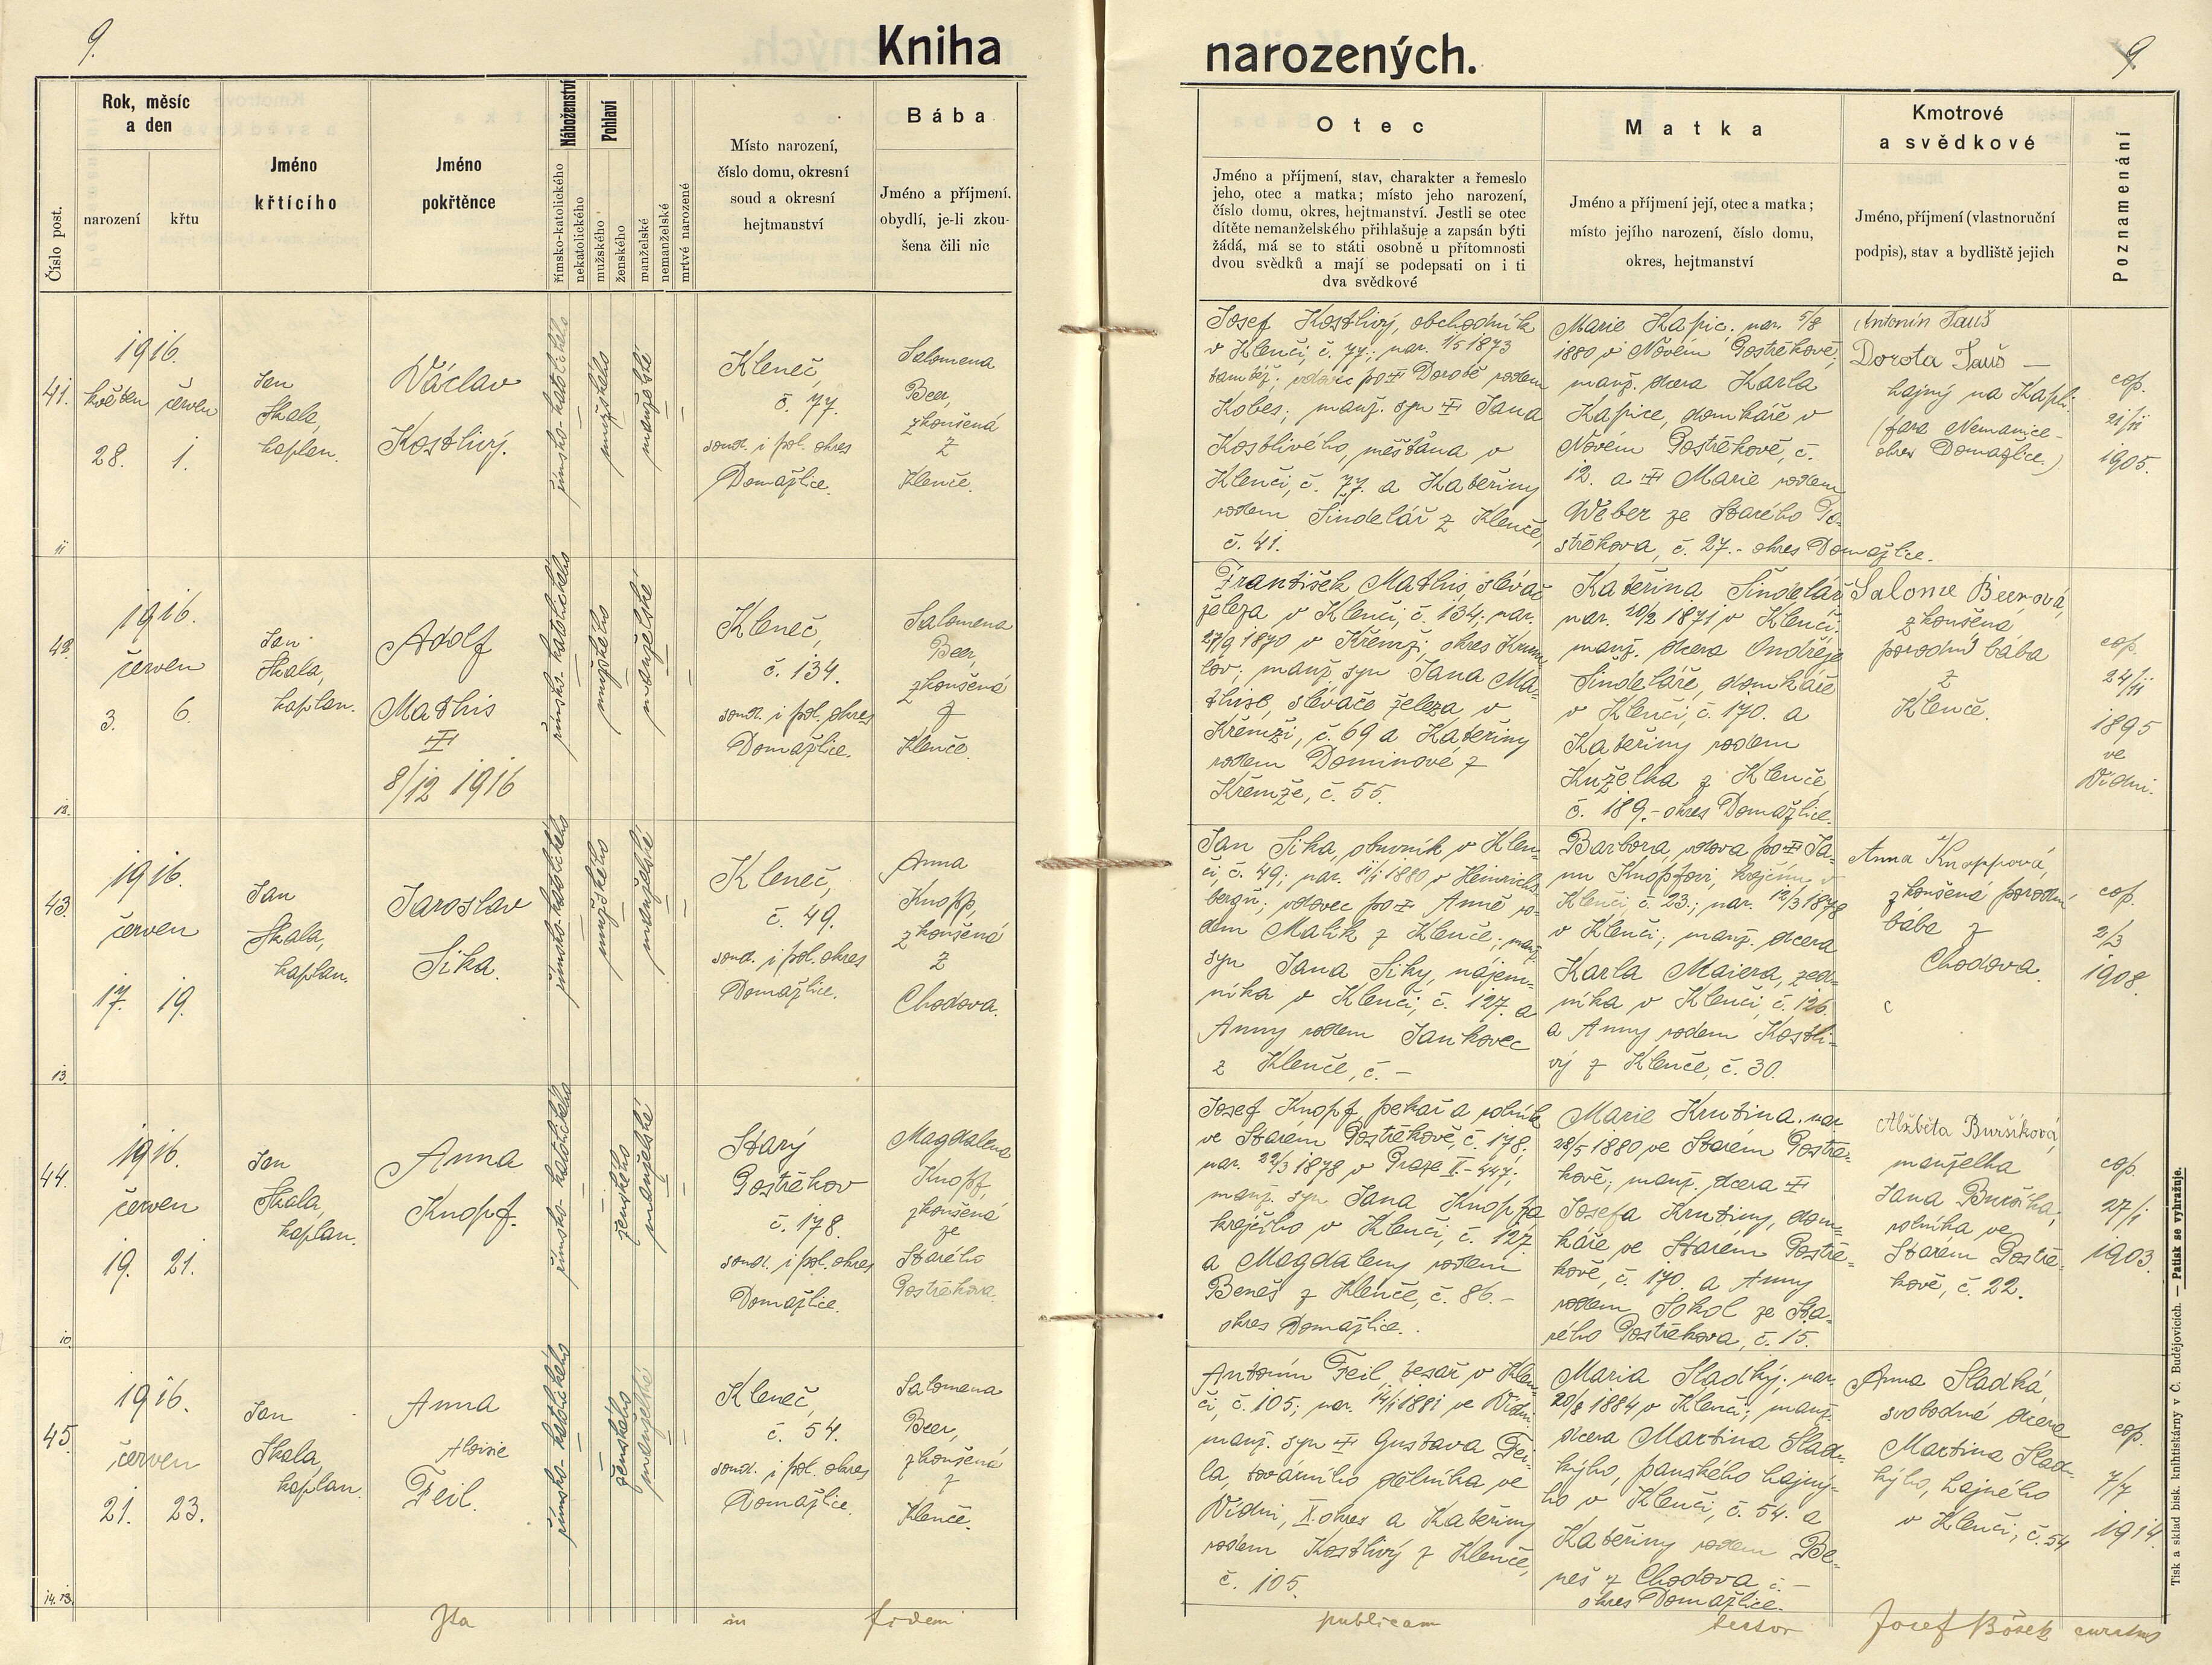 9.
Kniha
narozených.
9.
Číslo post.
Rok, měsíc
a den
narození
křtu
Jméno
křtícího
Jméno
pokřtěnce
Náboženství
římsko-katolického
nekatolického
Pohlaví
mužského
ženského
manželské
nemanželské
mrtvě narozené
Místo narození,
číslo domu, okresní
soud a okresní
hejtmanství
Bába
Jméno a příjmení.
obydlí, je-li zkou-
šena čili nic
Otec
Jméno a příjmení, stav, charakter a řemeslo
jeho, otec a matka; místo jeho narození,
číslo domu, okres, hejtmanství. Jestli se otec
dítěte nemanželského přihlašuje a zapsán býti
žádá, má se to státi osobně u přítomnosti
dvou svědků a mají se podepsati on i ti
dva svědkové
Matka
Jméno a příjmení její, otec a matka;
místo jejího narození, číslo domu,
okres, hejtmanství
Kmotrové
a svědkové
Jméno, příjmení (vlastnoruční
podpis), stav a bydliště jejich
Poznamenání
41.
1916.
květen červen
28. 1.
Jan
Skala,
kaplan.
Václav
Kostlivý.
římsko-katolického
mužského
manželské
Kleneč,
č. 77.
soud. i pol. okres
Domažlice.
Salomena
Beer,
zkoušená
z
Klenče.
Josef Kostlivý, obchodník
v Klenči, č. 77; nar. 1/5 1873
tamtéž; vdovec po ‡ Dorotě rodem
Kobes; manž. syn ‡ Jana
Kostlivého, měšťana v
Klenči, č. 77. a Kateřiny
rodem Šindelář z Klenče,
č. 41.
Marie Kapic. nar. 5/8
1880 v Novém Postřekově;
manž. dcera Karla
Kapice, domkáře v
Novém Postřekově, č.
12. a ‡ Marie rodem
Weber ze Starého Po-
střekova, č. 27. - okres Domažlice.
Antonín Tauš
Dorota Tauš —
hajný na Kapli.
(fara Nemanice -
okres Domažlice.)
cop.
21/11
1905.
11
42.
1916.
červen
3. 6.
Jan
Skala,
kaplan.
Adolf
Mathis
‡
8/12 1916
římsko-katolického
mužského
manželské
Kleneč,
č. 134.
soud. i pol. okres
Domažlice.
Salomena
Beer,
zkoušená
z
Klenče.
František Mathis, slévač
železa v Klenči, č. 134; nar.
27/9 1870 v Křemži, okres Krum-
lov; manž. syn Jana Ma-
thise, slévače železa, v
Křemži, č. 69 a Kateřiny
rodem Dominové z
Křemže, č. 55.
Kateřina Šindelář
nar. 20/2 1871 v Klenči;
manž. dcera Ondřeje
Šindeláře, domkáře
v Klenči, č. 170. a
Kateřiny rodem
Kuželka z Klenče,
č. 189. - okres Domažlice.
Salome Beerová,
zkoušená
porodní bába
z
Klenče.
cop.
24/11
1895
ve
Vídni.
12.
43.
1916.
červen
17. 19.
Jan
Skala,
kaplan.
Jaroslav
Sika.
římsko-katolického
mužského
manželské
Kleneč,
č. 49.
soud. i pol. okres
Domažlice.
Anna
Knopp,
zkoušená
z
Chodova.
Jan Sika, obuvník v Klen-
či, č. 49; nar. 11/1 1880 v Heinrichs-
bergu; vdovec po ‡ Anně ro-
dem Malik z Klenče; manž.
syn Jana Siky, nájem-
níka v Klenči, č. 127. a
Anny rodem Jankovec
z Klenče, č. -
Barbora, vdova po ‡ Ja-
nu Knopfovi, krejčímu v
Klenči, č. 23.; nar. 12/3 1878
v Klenči; manž. dcera
Karla Maiera, zed-
níka v Klenči, č. 126.
a Anny rodem Kostli-
vý z Klenče, č. 30.
Anna Knoppová,
zkoušená porodní
bába z
Chodova.
cop.
2/3
1908.
13.
44.
1916.
červen
19. 21.
Jan
Skala,
kaplan.
Anna
Knopf.
římsko-katolického
ženského
manželské
Starý
Postřekov
č. 178.
soud. i pol. okres
Domažlice.
Magdalena
Knopf,
zkoušená
ze
Starého
Postřekova.
Josef Knopf, pekař a rolník
ve Starém Postřekově, č. 178;
nar. 22/3 1878 v Praze II-447;
manž. syn Jana Knopfa
krejčího v Klenči, č. 127.
a Magdaleny rodem
Beneš z Klenče, č. 86. -
okres Domažlice.
Marie Krutina. nar.
28/5 1880 ve Starém Postře-
kově; manž. dcera ‡
Josefa Krutiny, dom-
káře ve Starém Postře-
kově, č. 170. a Anny
rodem Sokol ze Sta-
rého Postřekova, č. 15.
Alžběta Buršíková,
manželka
Jana Buršíka,
rolníka ve
Starém Postře-
kově, č. 22.
cop.
27/1
1903.
10
45.
1916.
červen
21. 23.
Jan
Skala,
kaplan.
Anna
Aloisie
Feil.
římsko-katolického
ženského
manželské
Kleneč,
č. 54.
soud. i pol. okres
Domažlice.
Salomena
Beer,
zkoušená
z
Klenče.
Antonín Feil, tesař v Klen-
či, č. 105; nar. 14/1 1881 ve Vídni
manž. syn ‡ Gustava Fei-
la, továrního dělníka ve
Vídni, X. okres a Kateřiny
rodem Kostlivý z Klenče,
č. 105.
Maria Sladký; nar.
20/8 1884 v Klenči; manž.
dcera Martina Slad-
kýho, panského hajný-
ho v Klenči, č. 54. a
Kateřiny rodem Be-
neš z Chodova č. -
okres Domažlice.
Anna Sladká,
svobodná dcera
Martina Slad-
kýho, hajného
v Klenči, č. 54
cop.
7/7
1914.
14. 13.
Ita in fidem publicam testor Josef Bőšek curatus
Tisk a sklad bisk. knihtiskárny v Č. Budějovicích. — Patisk se vyhražuje.